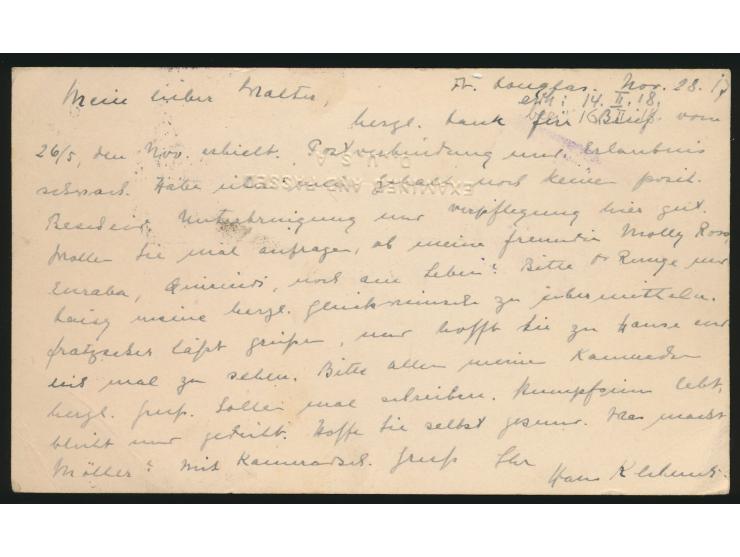 Mein lieber Walter, Ft. Douglas. Nov. 28. 17
erh: 14. II. 18.
herzl. Dank für Brief vom
26/5, den Nov. erhielt. Postverbindung und Erlaubnis
schwach. Habe noch keine posit.
EXAMINED AND PASSED
U.S.A.
Bescheid. Unterbringung und Verpflegung hier gut.
Wollen Sie mal anfragen, ob meine Freundin Molly Ross,
noch am Leben? Bitte Dr Runge und
Daisy meine herzl. Glückwünsche zu übermitteln.
läßt grüßen, und hofft Sie zu Hause
mal zu sehen. Bitte allen meine Kameraden
herzl. Gruß. Sollen mal schreiben. lebt,
blüht und gedeiht. Hoffe Sie selbst gesund. Was macht
Möller? Mit Kameradsch. Gruß Ihr
Hans